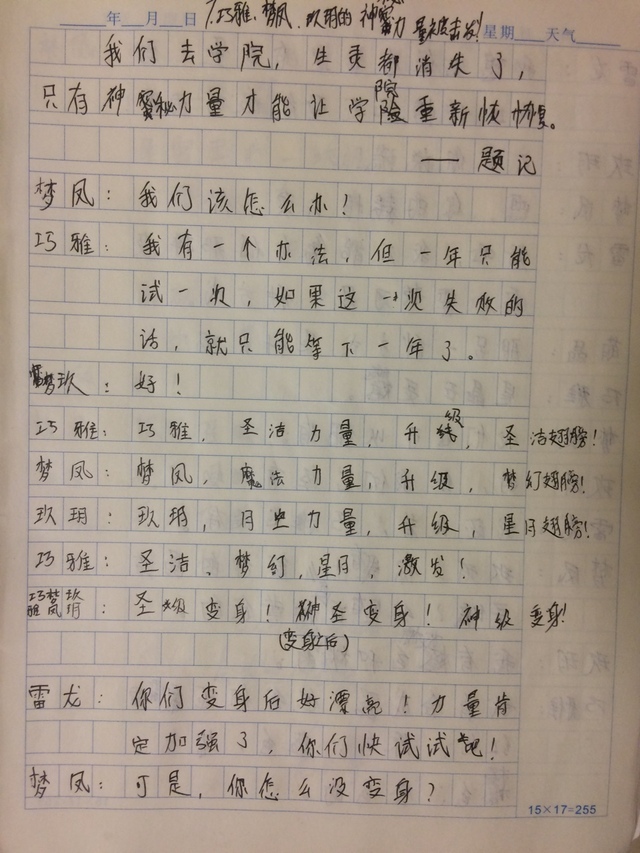 7.巧雅、梦凤、玖玥的神秘力量被击发!
年 月 日 星期 天气
我们去学院，生灵都消失了，
只有神秘力量才能让学院重新恢恢复。
——题记
梦凤：我们该怎么办！
巧雅：我有一个办法，但一年只能
试一次，如果这一次失败的
话，就只能等下一年了。
梦玖：好！
巧雅：巧雅，圣洁力量，升级，圣洁翅膀！
梦凤：梦凤，魔法力量，升级，梦幻翅膀！
玖玥：玖玥，月光力量，升级，星月翅膀！
巧雅：圣洁、梦幻，星月，激发！
巧雅梦凤玖玥：圣级变身！神圣变身！神级变身！
(变身后)
雷龙：你们变身后好漂亮！力量肯
定加强了，你们快试试吧！
梦凤：可是，你怎么没变身？
15×17=255